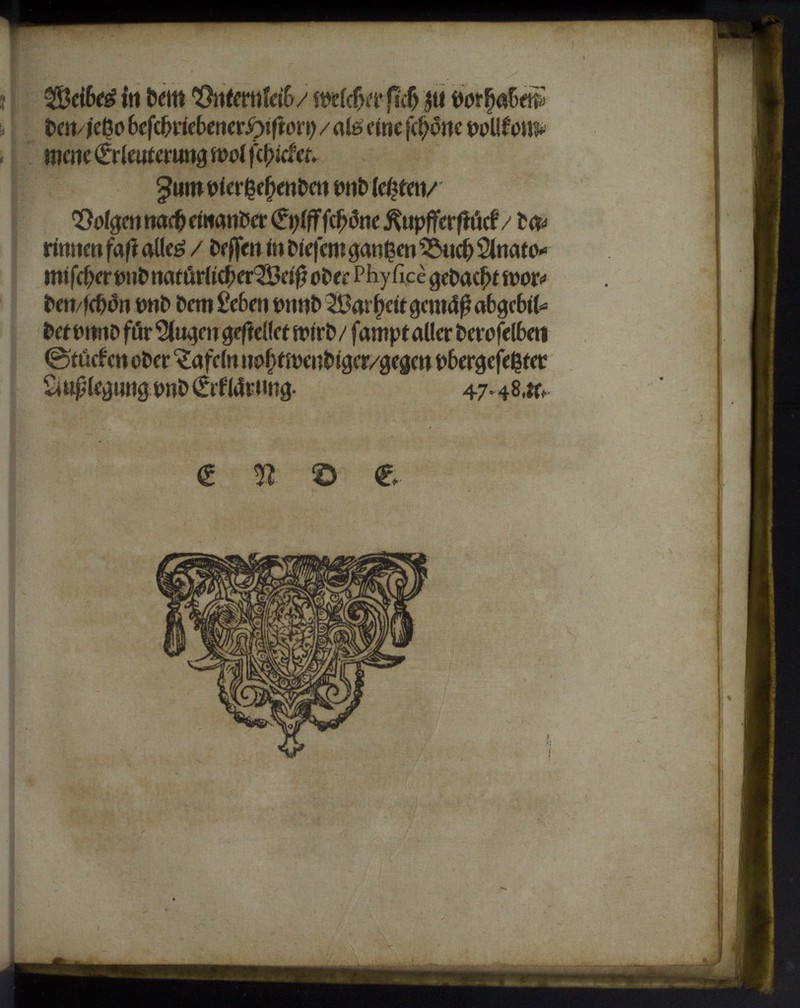 Weibes in dem Vnternleib / welcher sich zu vorhaben⸗
den / jetzo beschriebener History / als eine schöne vollkom⸗
mene Erleuterung wol schicket.
Zum viertzehenden vnd letzten /
Volgen nach einander Eylff schöne Kupfferstück / da⸗
rinnen fast alles / dessen in diesem gantzen Buch Anato⸗
mischer vnd natürlicher Weiß oder Physicè gedacht wor⸗
den / schön vnd dem Leben vnnd Warheit gemäß abgebil⸗
det vnnd für Augen gestellet wird / sampt aller deroselben
Stücken oder Tafeln nohtwendiger / gegen vbergesetzter
Außlegung vnd Erklärung. 47. 48. ꝛc.
E N D E.